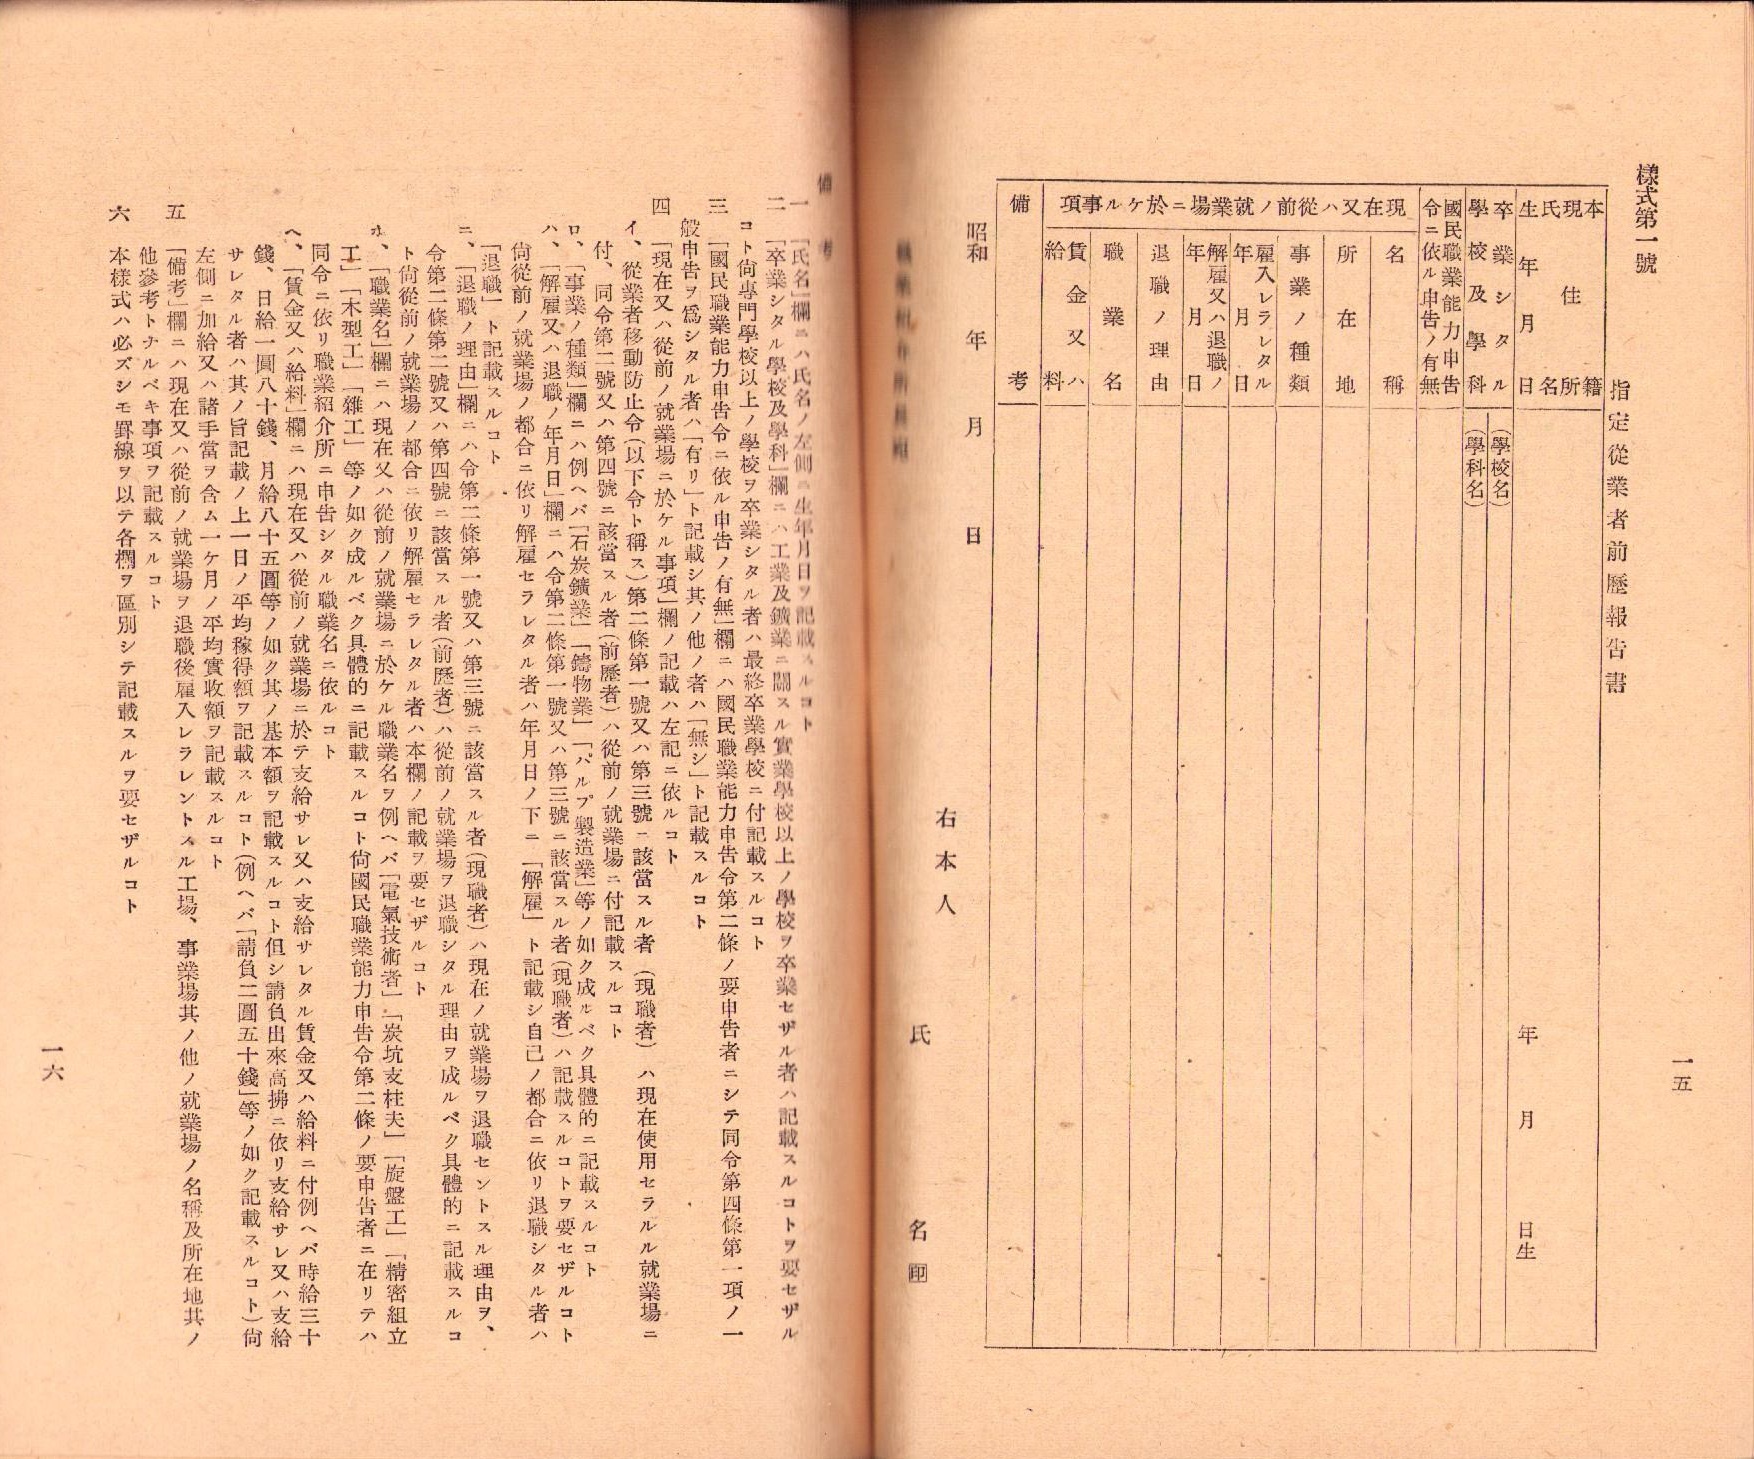 樣式第一號
指定從業者前歷報告書
本籍
現住所
氏名
生年月日
年 月 日生
卒業シタル
學校及學科
(學校名)
(學科名)
國民職業能力申告
令ニ依ル申告ノ有無
現在又ハ從前ノ就業場ニ於ケル事項
名稱
所在地
事業ノ種類
雇入レラレタル
年月日
解雇又ハ退職ノ
年月日
退職ノ理由
職業名
賃金又ハ
給料
備考
昭和 年 月 日
右本人
氏 名 ㊞
一五
備考
一 「氏名」欄ニハ氏名ノ左側ニ生年月日ヲ記載スルコト
二 「卒業シタル學校及學科」欄ニハ工業及鑛業ニ關スル實業學校以上ノ學校ヲ卒業セザル者ハ記載スルコトヲ要セザル
コト尙專門學校以上ノ學校ヲ卒業シタル者ハ最終卒業學校ニ付記載スルコト
三 「國民職業能力申告令ニ依ル申告ノ有無」欄ニハ國民職業能力申告令第二條ノ要申告者ニシテ同令第四條第一項ノ一
般申告ヲ爲シタル者ハ「有リ」ト記載シ其ノ他ノ者ハ「無シ」ト記載スルコト
四 「現在又ハ從前ノ就業場ニ於ケル事項」欄ノ記載ハ左記ニ依ルコト
イ、從業者移動防止令(以下令ト稱ス)第二條第一號又ハ第三號ニ該當スル者(現職者)ハ現在使用セラルル就業場ニ
付、同令第二號又ハ第四號ニ該當スル者(前歷者)ハ從前ノ就業場ニ付記載スルコト
ロ、「事業ノ種類」欄ニハ例ヘバ「石炭鑛業」「鑄物業」「パルプ製造業」等ノ如ク成ルベク具體的ニ記載スルコト
ハ、「解雇又ハ退職ノ年月日」欄ニハ令第二條第一號又ハ第三號ニ該當スル者(現職者)ハ記載スルコトヲ要セザルコト
尙從前ノ就業場ノ都合ニ依リ解雇セラレタル者ハ年月日ノ下ニ「解雇」ト記載シ自己ノ都合ニ依リ退職シタル者ハ
「退職」ト記載スルコト
ニ、「退職ノ理由」欄ニハ令第二條第一號又ハ第三號ニ該當スル者(現職者)ハ現在ノ就業場ヲ退職セントスル理由ヲ、
令第二條第二號又ハ第四號ニ該當スル者(前歷者)ハ從前ノ就業場ヲ退職シタル理由ヲ成ルベク具體的ニ記載スルコ
ト尙從前ノ就業場ノ都合ニ依リ解雇セラレタル者ハ本欄ノ記載ヲ要セザルコト
ホ、「職業名」欄ニハ現在又ハ從前ノ就業場ニ於ケル職業名ヲ例ヘバ「電氣技術者」「炭坑支柱夫」「旋盤工」「精密組立
工」「木型工」「雜工」等ノ如ク成ルベク具體的ニ記載スルコト尙國民職業能力申告令第二條ノ要申告者ニ在リテハ
同令ニ依リ職業紹介所ニ申告シタル職業名ニ依ルコト
ヘ、「賃金又ハ給料」欄ニハ現在又ハ從前ノ就業場ニ於テ支給サレ又ハ支給サレタル賃金又ハ給料ニ付例ヘバ時給三十
錢、日給一圓八十錢、月給八十五圓等ノ如ク其ノ基本額ヲ記載スルコト但シ請負出來高拂ニ依リ支給サレ又ハ支給
サレタル者ハ其ノ旨記載ノ上一日ノ平均稼得額ヲ記載スルコト(例ヘバ「請負二圓五十錢」等ノ如ク記載スルコト)尙
左側ニ加給又ハ諸手當ヲ含ム一ケ月ノ平均實收額ヲ記載スルコト
五 「備考」欄ニハ現在又ハ從前ノ就業場ヲ退職後雇入レラレントスル工場、事業場其ノ他ノ就業場ノ名稱及所在地其ノ
他參考トナルベキ事項ヲ記載スルコト
六 本樣式ハ必ズシモ罫線ヲ以テ各欄ヲ區別シテ記載スルヲ要セザルコト
一六